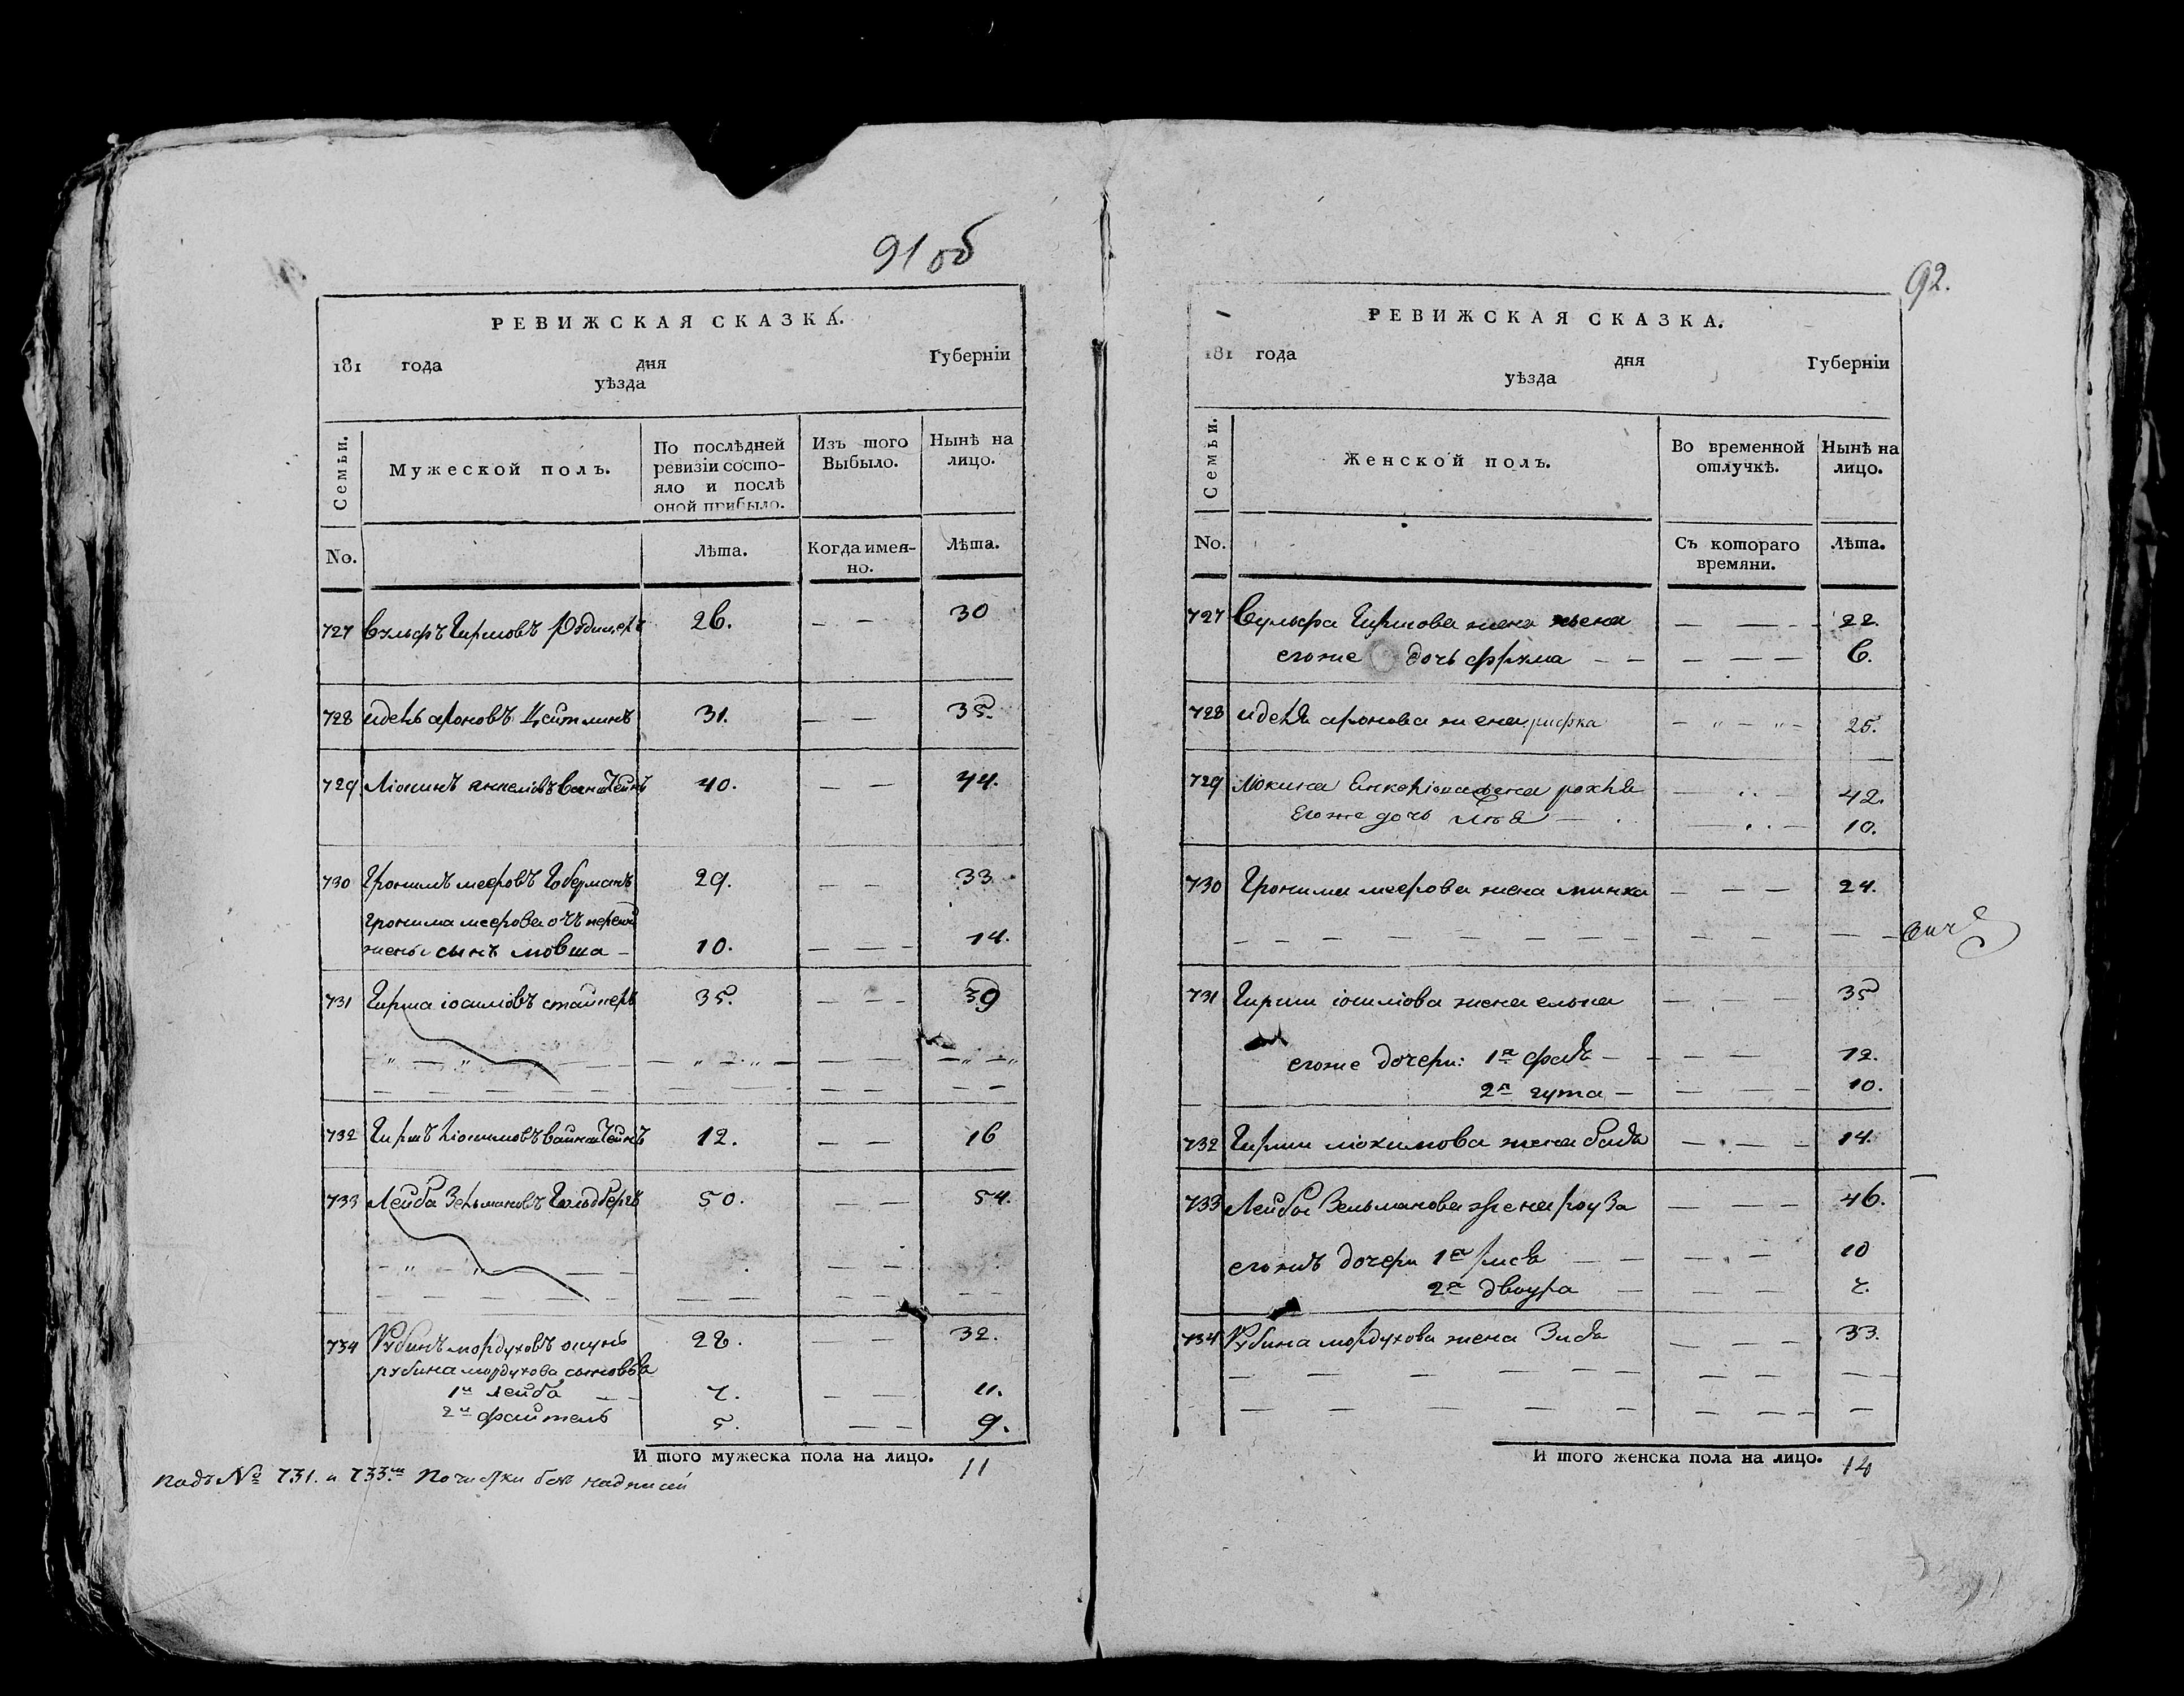 91 об
РЕВИЖСКАЯ СКАЗКА.
181 года дня Губерніи
уѣзда
Семьи. Мужеской полъ. По послѣдней ревизіи состо-яло и послѣ оной прибыло. Изъ того Выбыло. Нынѣ на лицо.
No. Лѣта. Когда имен-но. Лѣта.
727 Вульфъ Гиршовъ 26. — — 30
728 Идель ароновъ Цейтлинъ 31. — — 35.
729 40. — — 44.
730 Гронимъ мееровъ Гоберманъ 29. — — 33
Гронима меерова отъ первой
жены сынъ мовша — 10. — — — 14.
731 Гирша іосиліовъ 35. — — — 39
732 Гиршъ 12. — — 16
733 Лейба Зельмановъ Гольдбергъ 50. — — 54.
734 Рубинъ мордуховъ окунь 28. — — 32.
рубина мордухова сыновья
1й лейба 7. — — 11.
2й файтель 5. — — 9.
И того мужеска пола на лицо. 11
подъ № 731. и 733.м почистки безъ надписей
92.
РЕВИЖСКАЯ СКАЗКА.
181 года дня Губерніи
уѣзда
Семьи. Женской полъ. Во временной отлучкѣ. Нынѣ на лицо.
No. Съ котораго времяни. Лѣта.
727 Вульфа Гиршова жена — — — 22.
егоже дочь — — — 6.
728 иделя аронова жена рифка — — — 25.
729 жена рохля — — — 42.
Егоже дочь — — 10.
730 Гронима меерова жена минка — — — 24.
731 Гирши іосиліова жена елька — — — 35
егоже дочери: 1я — — — 12.
2я гута — — — 10.
732 Гирши жена — — — 14.
733 Лейбы Зельманова жена роуза — — — 46.
дочери 1я — — — 10
2я двоура — — — 7.
734 Рубина мордухова жена — — — 33.
И того женска пола на лицо. 14